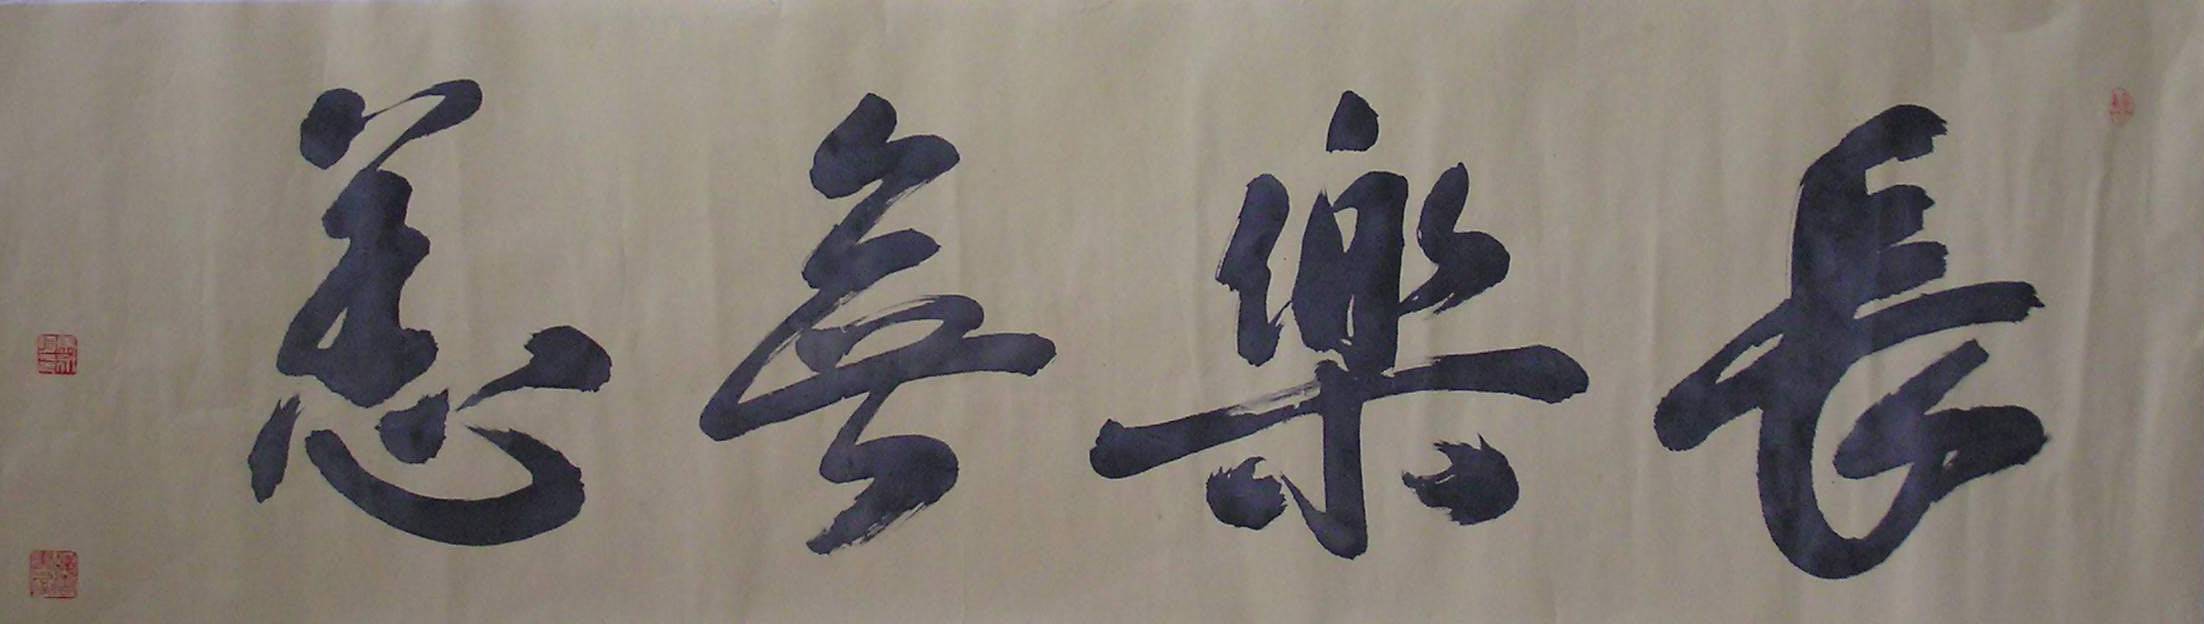 長樂無恙